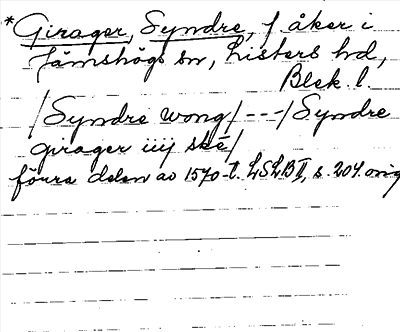 *Girager, Syndre, f åker i
Jämshögs sn, Listers hd,
Blek. l.
/Syndre wong/ - - -/ Syndre
girager iiij ske/
förra delen av 1570-t. LSLB II, s. 204. orig